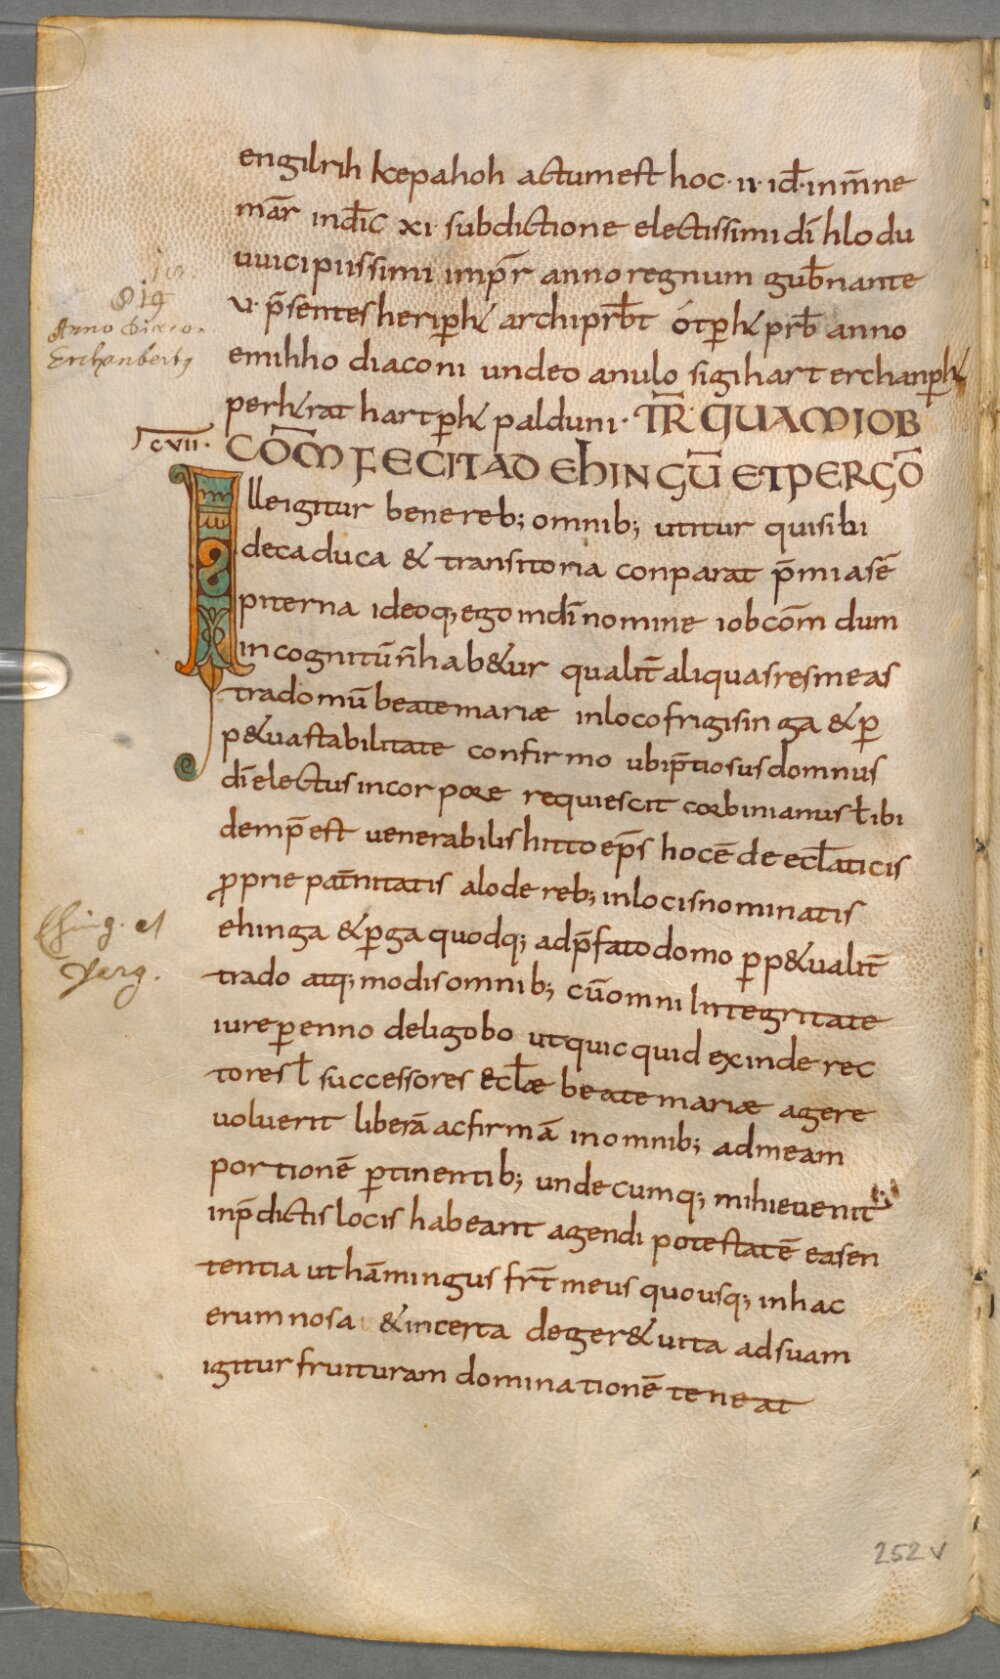 engilrih kepahoh actum est hoc · ii · id̄ · in m̄ne
mār indic̄ xi · sub dictione electissimi dī hlodu
uuici piissimi imp̄r anno regnum gub̄nante
v · p̄sentes heriꝑh archipr̄bt ótꝑh prb̄ anno
819
Anno Diaco.
Erchanbert9
emihho diaconi undeo anulo sigihart erchanꝑh
perhrat hartꝑh palduni · TR̄ · QUAM IOB
cvii · COM̄ FECIT AD EHINGŪ ET PERGŌ
Ille igitur bene reb; omnib; utitur qui sibi
de caduca & transitoria conparat p̄mia sē
piterna ideoq; ego in dī nomine iob com̄ dum
incognitū n̄ hab&ur qualit̄ aliquas res meas
trado mū beate mariæ in loco frigisinga & ꝑ
p&ua stabilitate confirmo ubi p̄tiosus domnus
dī electus in corpore requiescit corbinianus t̄ ibi
demp̄est uenerabilis hitto ep̄s hoc ē de ecl̄aticis
ꝓprie pat̄nitatis alode reb; in locis nominatis
Ehing. et
Perg.
ehinga & ꝑga quodq; ad p̄fato domo ꝑp&ualit̄
trado atq; modis omnib; cū omni Integritate
iure ꝑenno deligobo ut quicquid exinde rec
tores l̄ successores ecl̄æ beate mariæ agere
uoluerit liberā ac firmā in omnib; ad meam
portionē ꝑtinentib; undecumq; mihi euenit
in p̄dictis locis habeant agendi potestatē ea sen
tentia ut hāmingus fr̄t meus quousq; in hac
erumnosa & incerta deger& uita ad suam
igitur fruituram dominationē teneat
252v